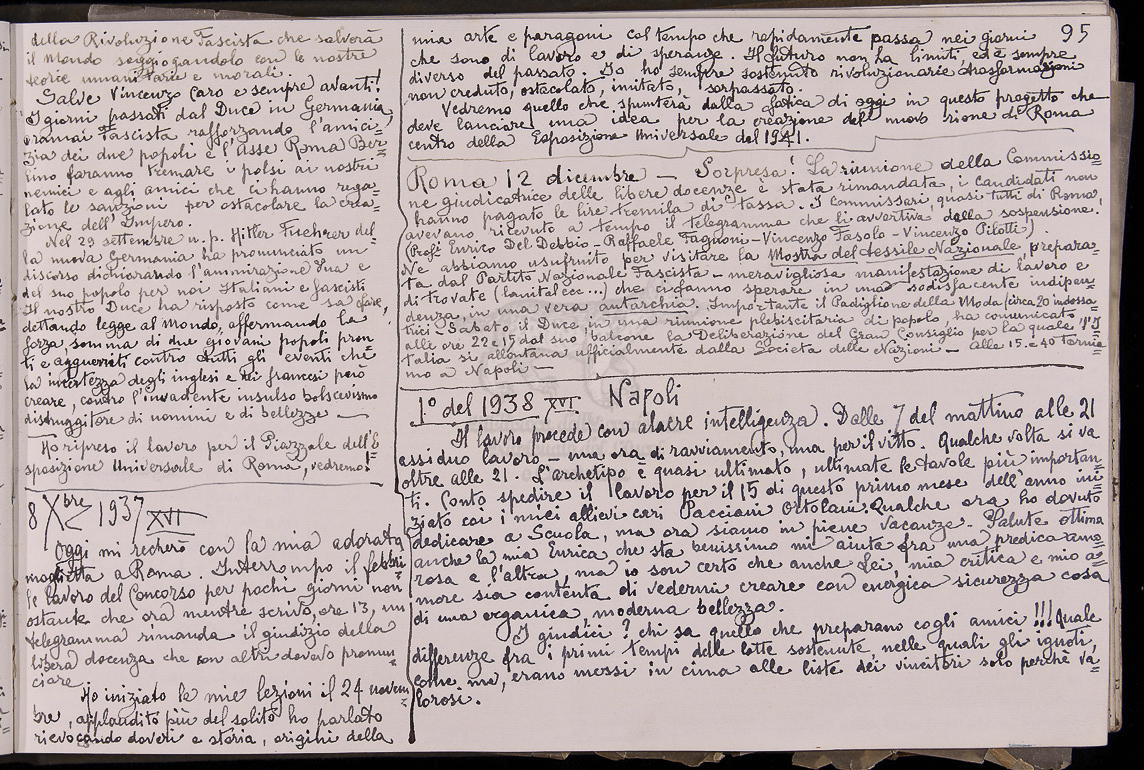 della Rivoluzione Fascista che salverà
il mondo soggiogandolo con le nostre
teorie umanitarie e morali.
Salve Vincenzo Caro e sempre avanti!
I giorni passati dal Duce in Germania,
oramai Fascista rafforzando l'amici=
zia dei due popoli e l'asse Roma Ber=
lino faranno tremare i polsi ai nostri
nemici e agli amici che ci hanno rega=
lato le sanzioni per ostacolare la crea=
zione dell'Impero.
Nel 29 settembre u. p. Hitler Fuehrer del=
la nuova Germania ha pronunciato un
discorso dichiarando l'ammirazione sua e
del suo popolo per noi Italiani e fascisti
Il nostro Duce ha risposto come sa fare,
dettando legge al mondo, affermando la
forza, somma di due giovani popoli pron=
ti e agguerriti contro tutti gli eventi che
la incertezza degli inglesi e dei francesi può
creare, contro l'invadente insulso bolscevismo
distruggitore di uomini e di bellezze —
Ho ripreso il lavoro per il Piazzale dell'E
sposizione Universale di Roma, vedremo!
8 Xbre 1937 XVI
Oggi mi recherò con la mia adorata
maglietta a Roma. Interrompo il febbri=
le lavoro del Concorso per pochi giorni non
ostante che ora mentre scrivo, ore 13, un
telegramma rimanda il giudizio della
libera docenza che con altri dovevo pronun=
ciare
Ho iniziato le mie lezioni il 24 novem
bre, applaudito più del solito ho parlato
rievocando doveri e storia, origini della
mia arte e paragoni col tempo che rapidamente passa nei giorni 95
che sono di lavoro e di speranze. Il futuro non ha limiti, ed è sempre
diverso del passato. Io ho sempre sostenuto rivoluzionarie trasformazioni
non creduto, ostacolato, imitato, sorpassato.
Vedremo quello che spunterà dalla fatica di oggi in questo progetto che
deve lanciare una idea per la creazione del nuovo rione di Roma
centro della Esposizione Universale del 1941.
Roma 12 dicembre — Sorpresa! La riunione della Commissio=
ne giudicatrice delle libere docenze è stata rimandata, i candidati non
hanno pagato le lire tremila di tassa. I Commissari, quasi tutti di Roma,
avevano ricevuto a tempo il telegramma che li avvertiva della sospensione.
(Prof. Enrico Del Debbio - Raffaele Fagnoni - Vincenzo Fasolo - Vincenzo Pilotti)
Ne abbiamo usufruito per visitare la Mostra del tessile Nazionale, prepara=
ta dal Partito Nazionale Fascista - meravigliosa manifestazione di lavoro e
di trovate (lanital ecc...) che ci fanno sperare in una sodisfacente indipen=
denza, in una vera autarchia. Importante il Padiglione della Moda (circa 20 indossa
trici - Sabato il Duce in una riunione plebiscitaria di popolo, ha comunicato
alle ore 22 e 15 dal suo balcone la Deliberazione del Gran Consiglio per la quale l'I
talia si allontana ufficialmente dalla Società delle Nazioni — alle 15 e 40 tornia=
mo a Napoli —
1° del 1938 XVI Napoli
Il lavoro procede con alacre intelligenza. Dalle 7 del mattino alle 21
assiduo lavoro — una ora di ravviamento, una per il vitto. Qualche volta si va
oltre alle 21. L'archetipo è quasi ultimato, ultimate le tavole più importan=
ti. Conto spedire il lavoro per il 15 di questo primo mese dell'anno ini=
ziato coi i miei allievi cari Pacciani Ortolani. Qualche ora ho dovuto
dedicare a Scuola, ma ora siamo in piene vacanze. Salute ottima
anche la mia Enrica che sta benissimo mi aiuta fra una predica amo=
rosa e l'altra, ma io son certo che anche Lei, mia critica e mio a=
more sia contenta di vedermi creare con energica sicurezza cosa
di una organica, moderna bellezza.
I giudici? chi sa quello che preparano cogli amici!!! Quale
differenze fra i primi tempi delle lotte sostenute, nelle quali gli ignoti,
come me, erano messi in cima alle liste dei vincitori solo perchè va=
lorosi.